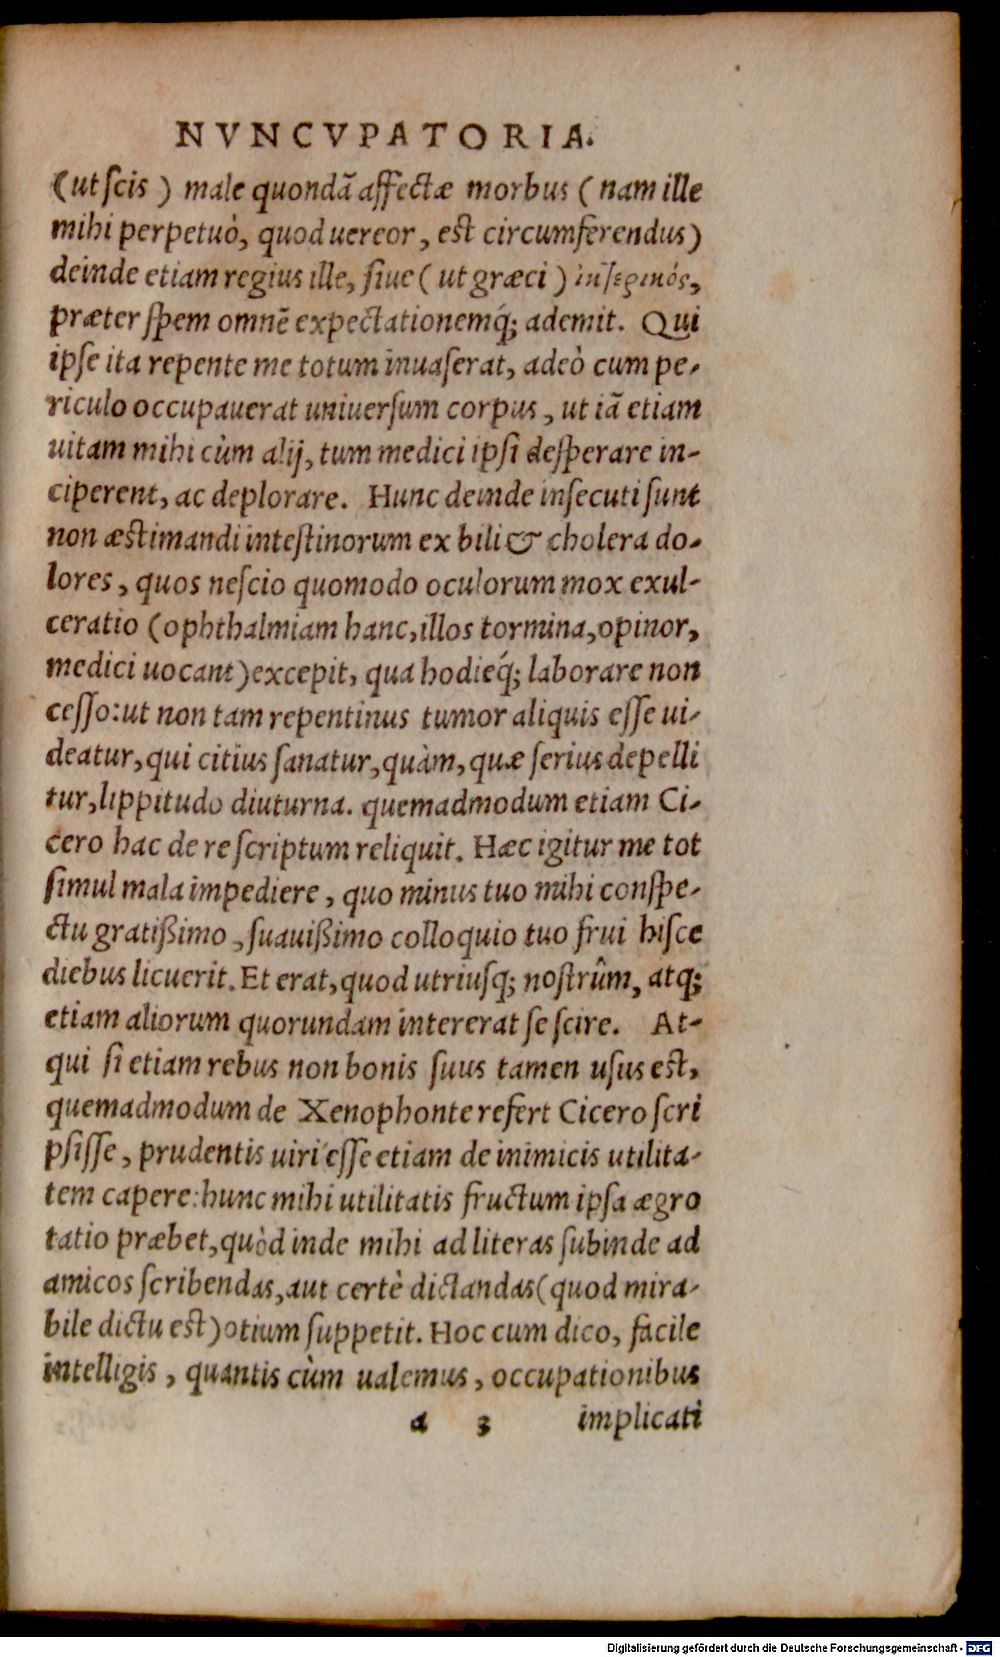 NVNCVPATORIA.
(ut scis) male quondã affectæ morbus (nam ille
mihi perpetuò, quod uereor, est circumferendus)
deinde etiam regius ille, siue (ut græci)
præter spem omnẽ expectationemq́; ademit. Qui
ipse ita repente me totum inuaserat, adeò cum pe-
riculo occupauerat uniuersum corpus, ut iã etiam
uitam mihi cùm alij, tum medici ipsi desperare in-
ciperent, ac deplorare. Hunc deinde insecuti sunt
non æstimandi intestinorum ex bili & cholera do-
lores, quos nescio quomodo oculorum mox exul-
ceratio (ophthalmiam hanc, illos tormina, opinor,
medici uocant) excepit, qua hodieq́; laborare non
cesso: ut non tam repentinus tumor aliquis esse ui-
deatur, qui citius sanatur, quàm, quæ serius depelli
tur, lippitudo diuturna. quemadmodum etiam Ci-
cero hac de re scriptum reliquit. Hæc igitur me tot
simul mala impediere, quo minus tuo mihi conspe-
ctu gratißimo, suauißimo colloquio tuo frui hisce
diebus licuerit. Et erat, quod utriusq; nostrûm, atq;
etiam aliorum quorundam intererat se scire. At-
qui si etiam rebus non bonis suus tamen usus est,
quemadmodum de Xenophonte refert Cicero scri
psisse, prudentis uiri esse etiam de inimicis utilita-
tem capere: hunc mihi utilitatis fructum ipsa ægro
tatio præbet, quòd inde mihi ad literas subinde ad
amicos scribendas, aut certè dictandas (quod mira-
bile dictu est) otium suppetit. Hoc cum dico, facile
intelligis, quantis cùm ualemus, occupationibus
a 3 implicati
Digitalisierung gefördert durch die Deutsche Forschungsgemeinschaft - DFG